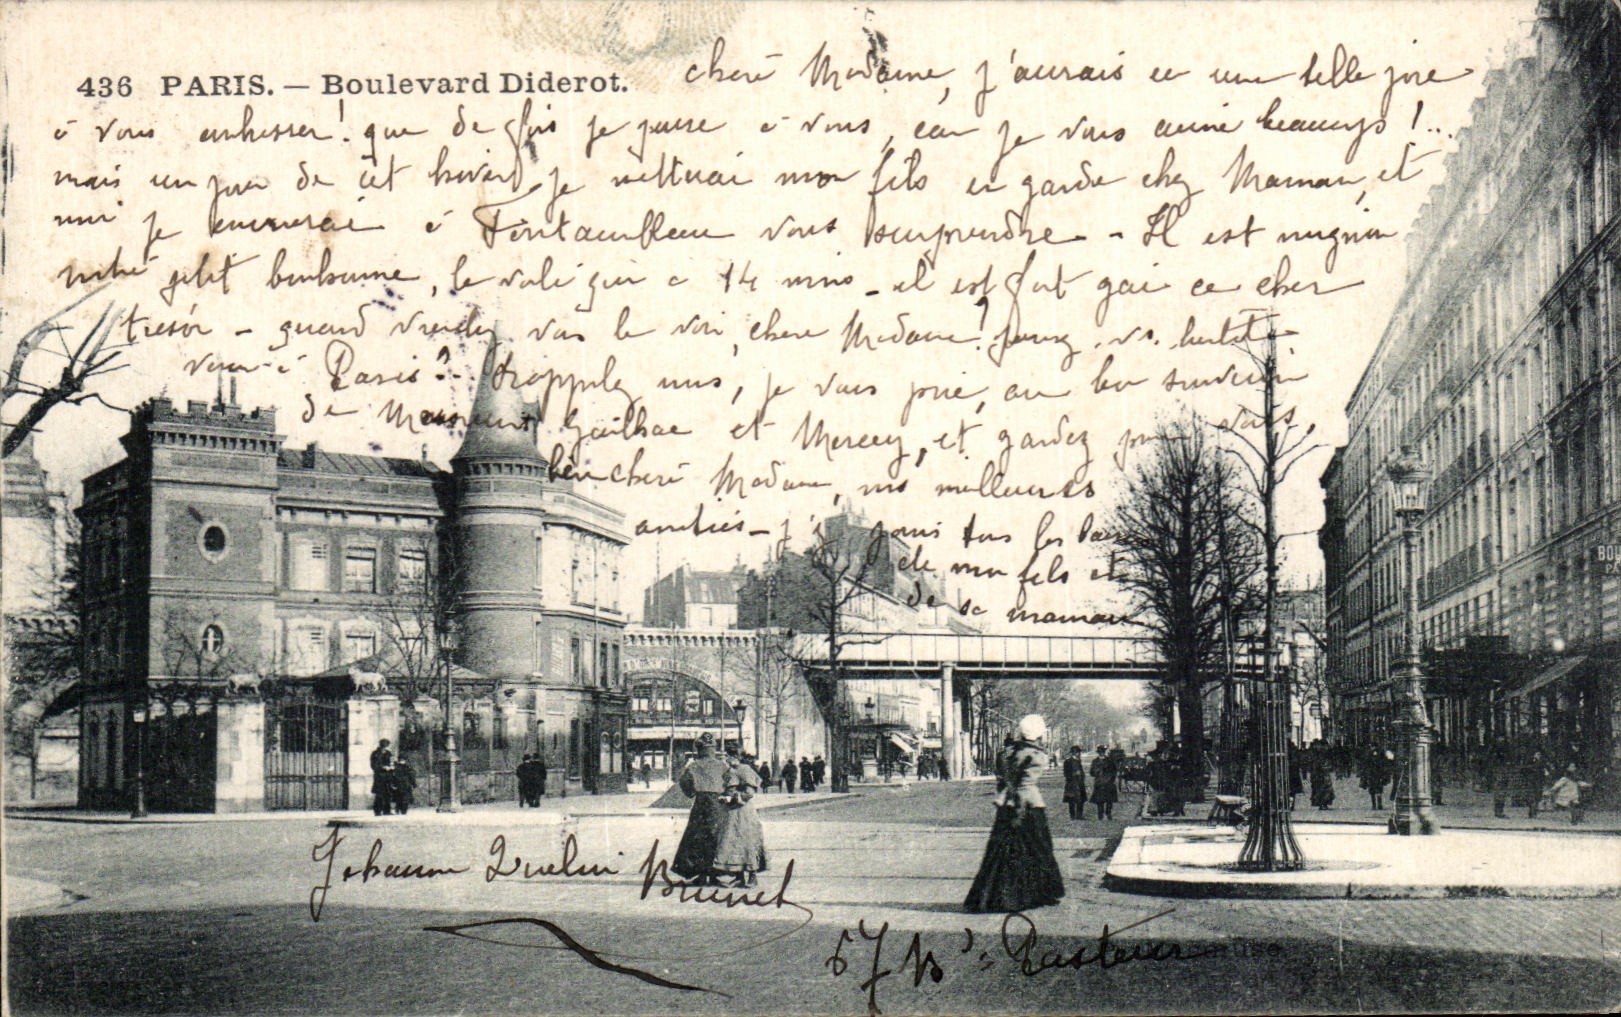 436 PARIS. — Boulevard Diderot.
chère Madame, j'aurais eu une telle joie
à vous embrasser! que de fois je pense à vous, car je vous aime beaucoup!...
mais un jour de cet hiver, je mettrai mon fils en garde chez Maman, et
moi je courrai à Fontainebleau vous surprendre - Il est mignon
notre petit bonhomme, le voilà qui a 14 mois - il est fort gai ce cher
trésor - quand viendrez vous le voir, chère Madame?
à Paris?.. Rappelez nous, je vous prie, au bon souvenir
de Gailhac et Mercey, et gardez pour vous,
bien chère Madame, nos meilleures
amitiés - j'y joins tous les
de mon fils et
de sa maman
Johanna Brunet
67 Bd Pasteur